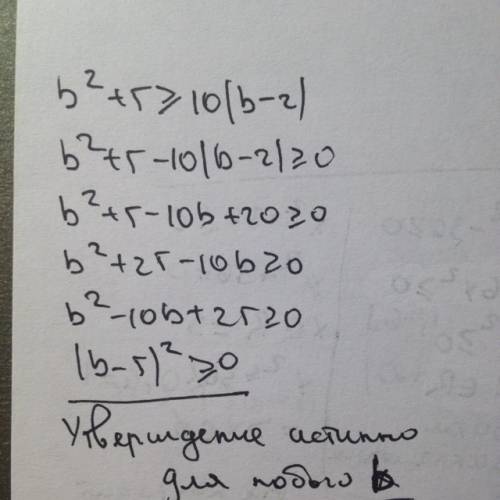 b²+5≥10(b-2)
b²+5-10(b-2)≥0
b²+5-10b+20≥0
b²+25-10b≥0
b²-10b+25≥0
(b-5)²≥0
Утверждение истинно
для любого b